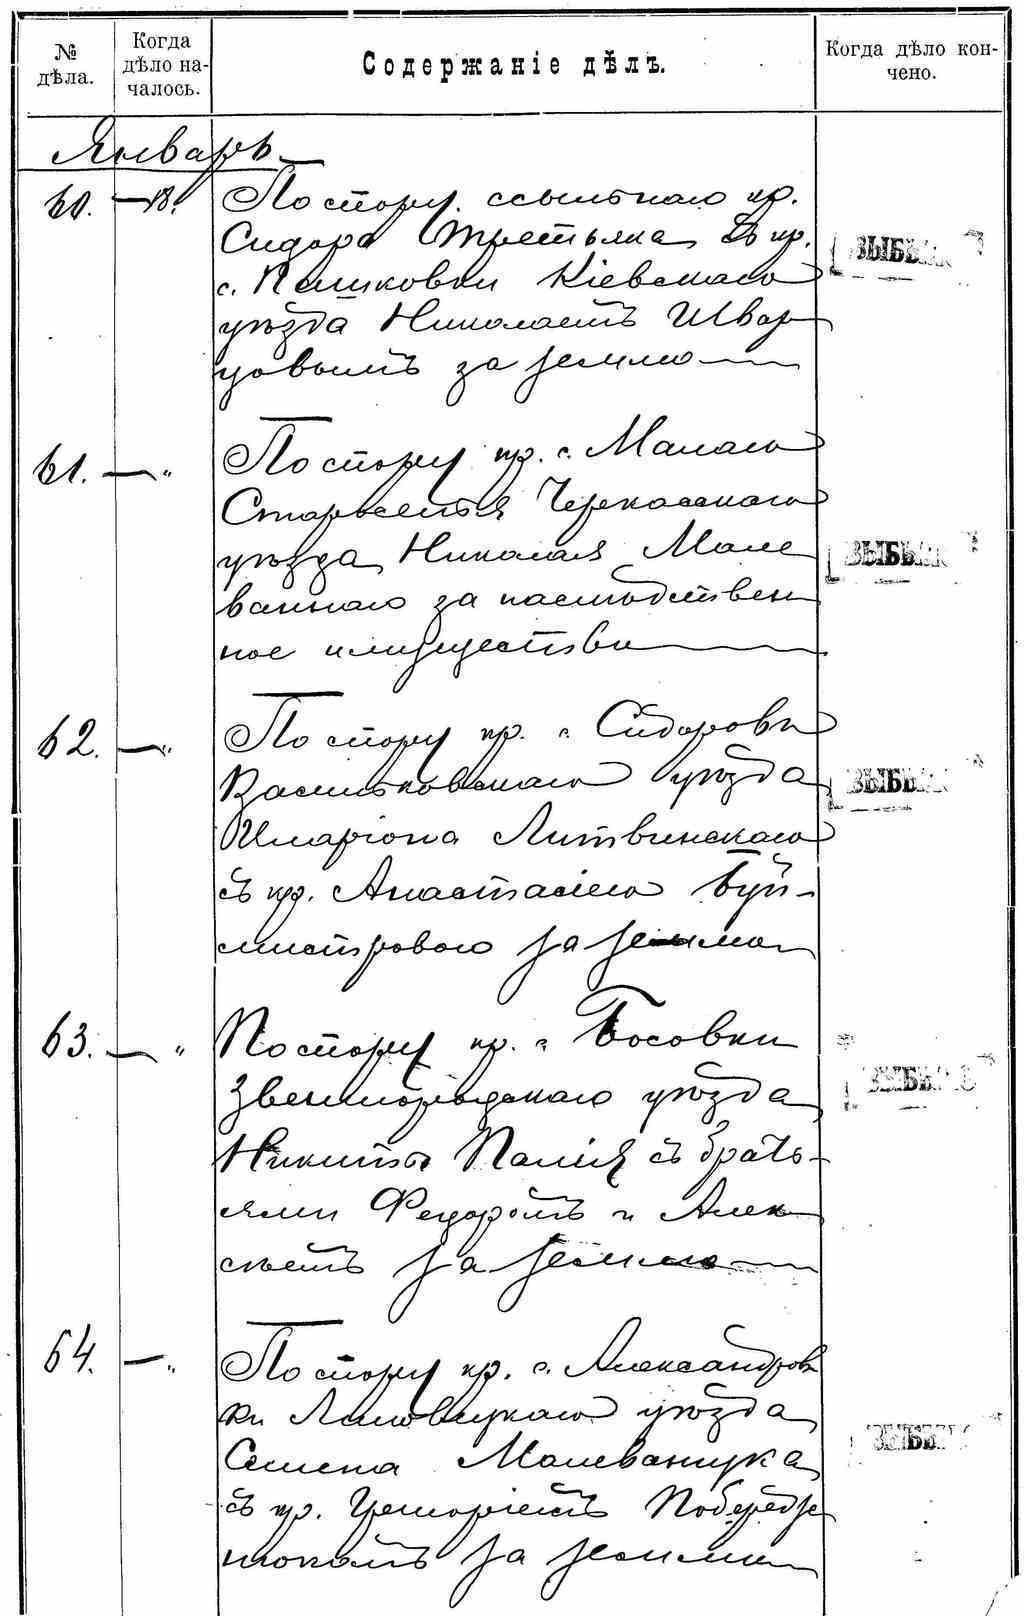 № дѣла.
Когда дѣло началось.
Содержаніе дѣлъ.
Когда дѣло кончено.
Январь
60. — 18.
По спору ссыльнаго кр.
Сидора Третьяка съ кр.
с. Пашковки Кіевскаго
уѣзда Николаемъ Швар-
цовымъ за землю
ВЫБЫЛО
61. — "
По спору кр. с. Малаго
Староселья Черкасскаго
уѣзда Николая Мале
ваннаго за наслѣдствен
ное имущество
ВЫБЫЛО
62. — "
По спору кр. с. Сидоровки
Васильковскаго уѣзда
Иларіона Литвинскаго
съ кр. Анастасіею Буй-
мистровою за землю
ВЫБЫЛО
63. — "
По спору кр. с. Босовки
Звенигородскаго уѣзда
Никиты Палія съ брать-
ями Федоромъ и Алек
сѣемъ за землю
ВЫБЫЛО
64. — "
По спору кр. с. Александров
ки Липовецкаго уѣзда
Семена Малеванчука
съ кр. Григоріемъ
за землю
ВЫБЫЛО